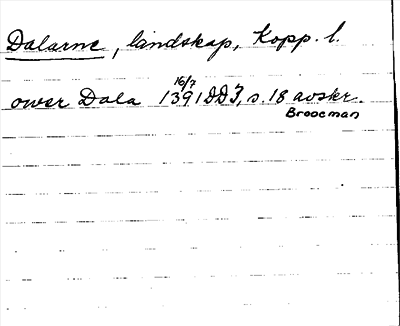 Dalarne, landskap, Kopp. l.
16/7
ower Dala 1391 DD I, s. 18 avskr.
Brooeman